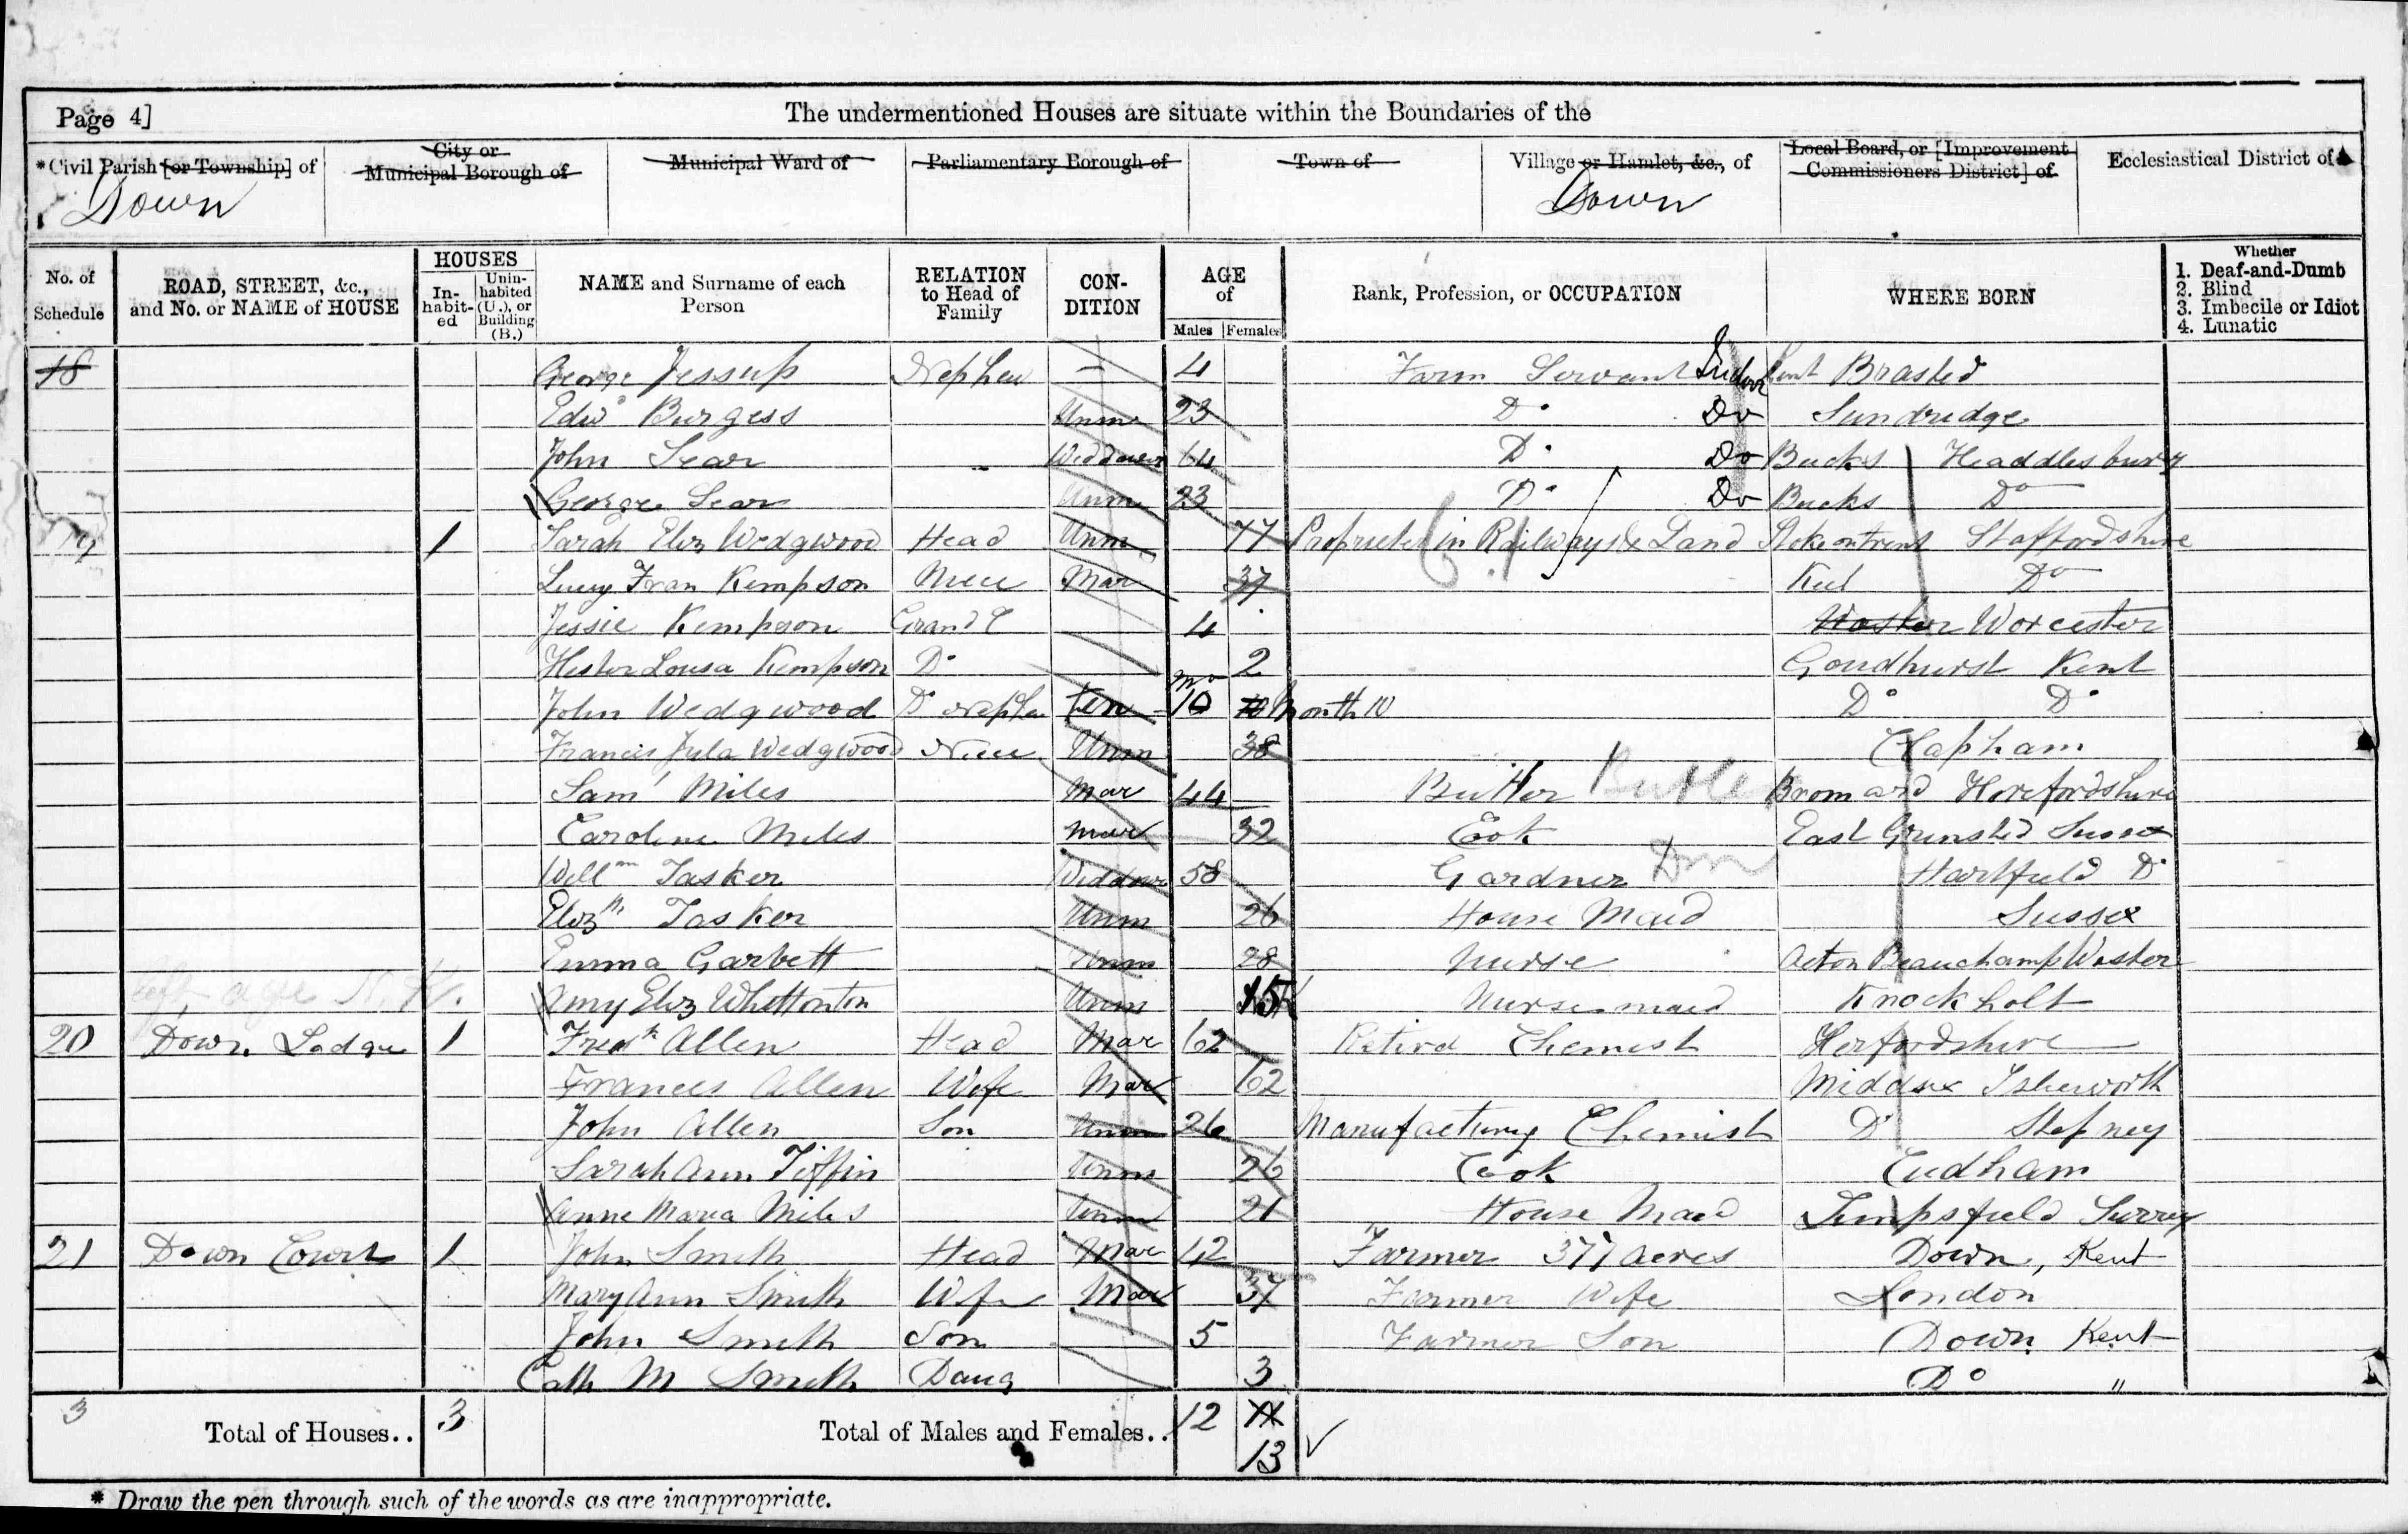 Page 4]
The undermentioned Houses are situate within the Boundaries of the
*Civil Parish [or Township] of Down
City or Municipal Borough of
Municipal Ward of
Parliamentary Borough of
Town of
Village or Hamlet, &c., of Down
Local Board, or [Improvement Commissioners District] of
Ecclesiastical District of
No. of Schedule
ROAD, STREET, &c., and No. or NAME of HOUSE
HOUSES
In-habit-ed
Unin-habited (U.), or Building (B.)
NAME and Surname of each Person
RELATION to Head of Family
CON-DITION
AGE of
Males Females
Rank, Profession, or OCCUPATION
WHERE BORN
Whether
1. Deaf-and-Dumb
2. Blind
3. Imbecile or Idiot
4. Lunatic
18 George Jessup Nephew - 4 Farm Servant Indoor Kent Brasted
Edwd Burgess Unm 23 Do Do Sundridge
John Sear Widdower 64 Do Do Bucks Headdlesbury
George Sear Unm 23 Do Do Bucks Do
19 1 Sarah Eliz Wedgwood Head Unm 77 Proprietor in Railways & Land Stoke on trent Staffordshire
Lucy Fran Kempson Niece Mar 37 Keel Do
Jessie Kempson Grand 4 Worcester
Hester Lousa Kempson Do 2 Goudhurst Kent
John Wedgwood Do Nephew 10 mo Month 10 Do Do
Francis Jula Wedgwood Niece Unm 38 Clapham
Saml Miles Mar 44 Butler Butler Bromard Herefordshire
Caroline Miles Mar 32 Cook East Grinsted Sussex
Willm Tasker Widdower 58 Gardner Dom Hartfield Do
Elizth Tasker Unm 26 House Maid Sussex
Emma Garbett Unm 28 Nurse Acton Beauchamp Woster
age N.K.
Amy Eliz Whettonton Unm 15 Nurse maid Knockholt
20 Down Lodge 1 Fredk Allen Head Mar 62 Retird Chemist Herfordshire
Frances Allen Wife Mar 62 Middsex Isleworth
John Allen Son Unm 26 Manufacturing Chemist Do Stepney
Sarah Ann Tiffin Unm 26 Cook Cudham
Anne Maria Miles Unm 21 House Maid Limpsfield Surrey
21 Down Court 1 John Smith Head Mar 42 Farmer 377 acres Down, Kent
Mary Ann Smith Wife Mar 37 Farmer Wife London
John Smith Son 5 Farmer Son Down Kent
Cath M Smith Daug 3 Do "
3 Total of Houses.. 3 Total of Males and Females.. 12 11
13 ✓
* Draw the pen through such of the words as are inappropriate.